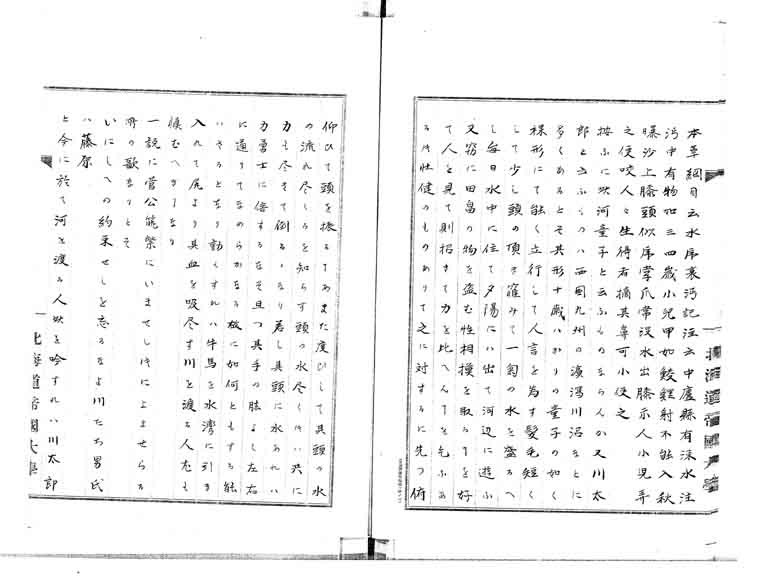 本草綱目云水乕襄沔記注云中廬縣有涑水注
沔中有物如三四歳小児甲如鮫鯉射不能入秋
曝沙上膝頭似乕掌爪常没水出膝示人小児弄
之便咬人々生得者摘其鼻可小使之
按ふに此河童子と云ふものならんか又川太
郎と云ふらのハ西國九州の渓澗川沼などに
多くあるとぞ其形十歳ハかりの童子の如く
裸形にて能く立行して人言を為す髪毛短く
して少し頭の頂き窪みて一匊の水を盛るへ
し毎日水中に住て夕陽にハ出て河辺に遊ふ
又窃に田畠の物を盗む性相撲を取ることを好
て人を見て則招きて力を比へんことを乞ふあ
る时壮健のものありて之に対するに先つ俯
仰ひて頭を振ることあまた度ひして其頭の水
の流れ尽しるを知らす頭の水尽くれハ共に
力も尽きて倒るゝなり若し其頭に水あれハ
力勇士に倍するなそ且つ其手の肱よく左右
に通りてなめらかなる故に如何ともする能
ハさるとなり動もすれハ牛馬を水湾に引き
入れて尻より其血を吸尽す川を渡る人尤も
慎むへきなり
一説に菅公筑紫にいませし时によませらる
所の歌なりとそ
いにしへの約束せしを忘るなよ川たち男氏
ハ藤原
と今に於て河を渡る人此を吟すれハ川太郎
北海道帝國大學